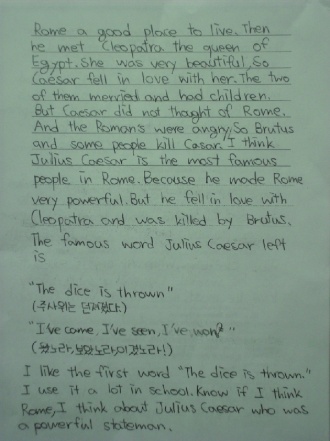 Rome a good place to live. Then
he met Cleopatra the queen of
Egypt. She was very beautiful, So
Caesar fell in love with her. The two
of them merried and had children.
But Caesar did not thought of Rome.
And the Roman's were angry. So Brutus
and some people kill Casar. I think
Julius Caesar is the most famous
people in Rome. Because he made Rome
very powerful. But he fell in love with
Cleopatra and was killed by Brutus.
The famous word Julius Caesar left
is
"The dice is thrown"
(주사위는 던져졌다.)
"I've come, I've seen, I've won?"
(왔노라, 보았노라, 이겼노라!)
I like the first word "The dice is thrown."
I use it a lot in school. Know if I think
Rome, I think about Julius Caesar who was
a powerful stateman.